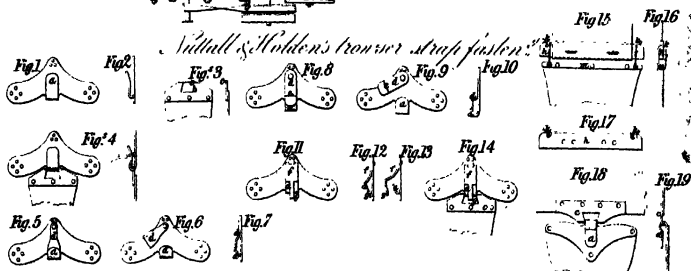 Nuttall & Holden's trowser strap fasten.^g
Fig.1 Fig.2 Fig.3 Fig.8 Fig.9 Fig.10 Fig.15 Fig.16
Fig.4 Fig.11 Fig.12 Fig.13 Fig.14 Fig.17
Fig.5 Fig.6 Fig.7 Fig.18 Fig.19